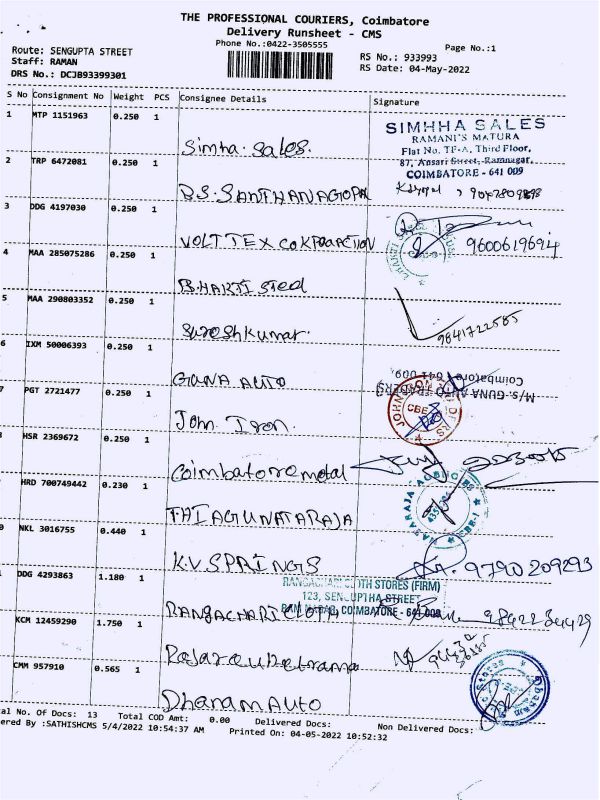 THE PROFESSIONAL COURIERS, Coimbatore
Delivery Runsheet - CMS
Phone No.:0422-3505555
Page No.:1
Route: SENGUPTA STREET
RS No.: 933993
Staff: RAMAN
RS Date: 04-May-2022
DRS No.: DCJB93399301
S No Consignment No Weight PCS Consignee Details Signature
1 MTP 1151963 0.250 1
Simha. Sales.
SIMHHA SALES
RAMANI'S MATURA
Flat No. TF-A, Third Floor,
87, Ansari Street, Ramnagar,
COIMBATORE - 641 009
2 TRP 6472081 0.250 1
B.S. SANTHANAGOPAL
3 DDG 4197030 0.250 1
VOLTTEX
9600619694
4 MAA 285075286 0.250 1
BHARTI Steel
5 MAA 290803352 0.250 1
Sureshkumar.
9841722585
6 IXM 50006393 0.250 1
GUNA AUTO
Coimbatore 641 009.
M/s. GUNA AUTO TRADERS
7 PGT 2721477 0.250 1
John Iron.
CBE
8 HSR 2369672 0.250 1
Coimbatore metal
HRD 700749442 0.230 1
THIAGUNATARAJA
0 NKL 3016755 0.440 1
K.V. SPRINGS
9790209293
DDG 4293863 1.180 1
RANGACHARI CLOTH STORES (FIRM)
123, SENGUPTHA STREET
RAM NAGAR, COIMBATORE - 641 009
RANGACHARI CLOTH
KCM 12459290 1.750 1
CMM 957910 0.565 1
Dhanam Auto
al No. Of Docs: 13 Total COD Amt: 0.00 Delivered Docs: Non Delivered Docs:
ered By :SATHISHCMS 5/4/2022 10:54:37 AM Printed On: 04-05-2022 10:52:32